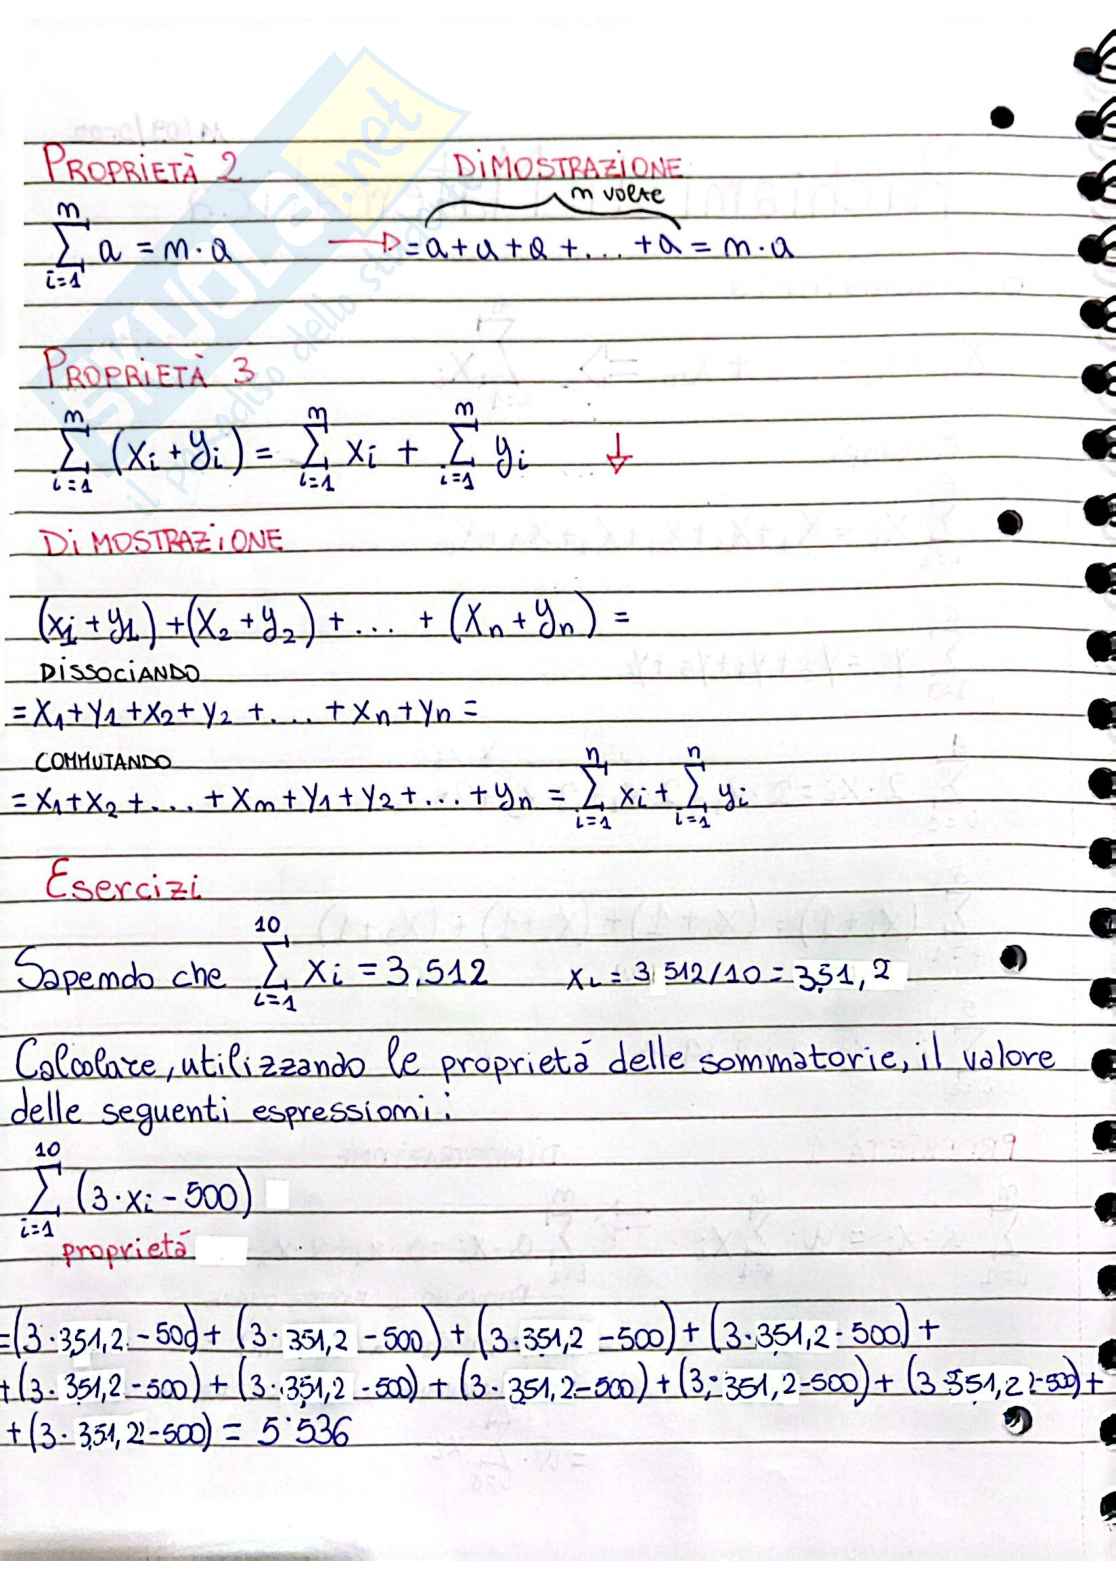 PROPRIETÀ 2 DIMOSTRAZIONE
n volte
n
∑ a = n · a → = a + a + a + ... + a = n · a
i=1
PROPRIETÀ 3
n n n
∑ (xi + yi) = ∑ xi + ∑ yi ↓
i=1 i=1 i=1
DIMOSTRAZIONE
(x1 + y1) + (x2 + y2) + ... + (xn + yn) =
DISSOCIANDO
= x1 + y1 + x2 + y2 + .... + xn + yn =
COMMUTANDO n n
= x1 + x2 + ... + xn + y1 + y2 + ... + yn = ∑ xi + ∑ yi
i=1 i=1
Esercizi
10
Sapendo che ∑ xi = 3.512 xi = 3 512/10 = 351,2
i=1
Calcolare, utilizzando le proprietà delle sommatorie, il valore
delle seguenti espressioni:
10
∑ (3 · xi - 500)
i=1
proprietà
=(3 · 351,2 - 500) + (3 · 351,2 - 500) + (3 · 351,2 - 500) + (3 · 351,2 - 500) +
+ (3 · 351,2 - 500) + (3 · 351,2 - 500) + (3 · 351,2 - 500) + (3 · 351,2 - 500) + (3 351,2 - 500) +
+ (3 · 351,2 - 500) = 5'536
SKUOLA.net
il paradiso dello studente